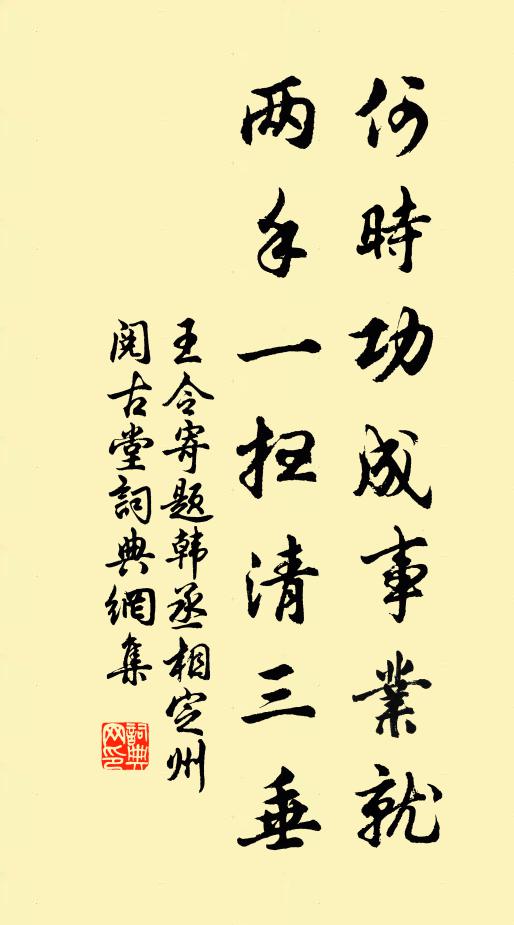 何時功成事業就
两手一抂清三垂
王令寄题韩丞相定州
阅古堂詞典網集
詞典
网印